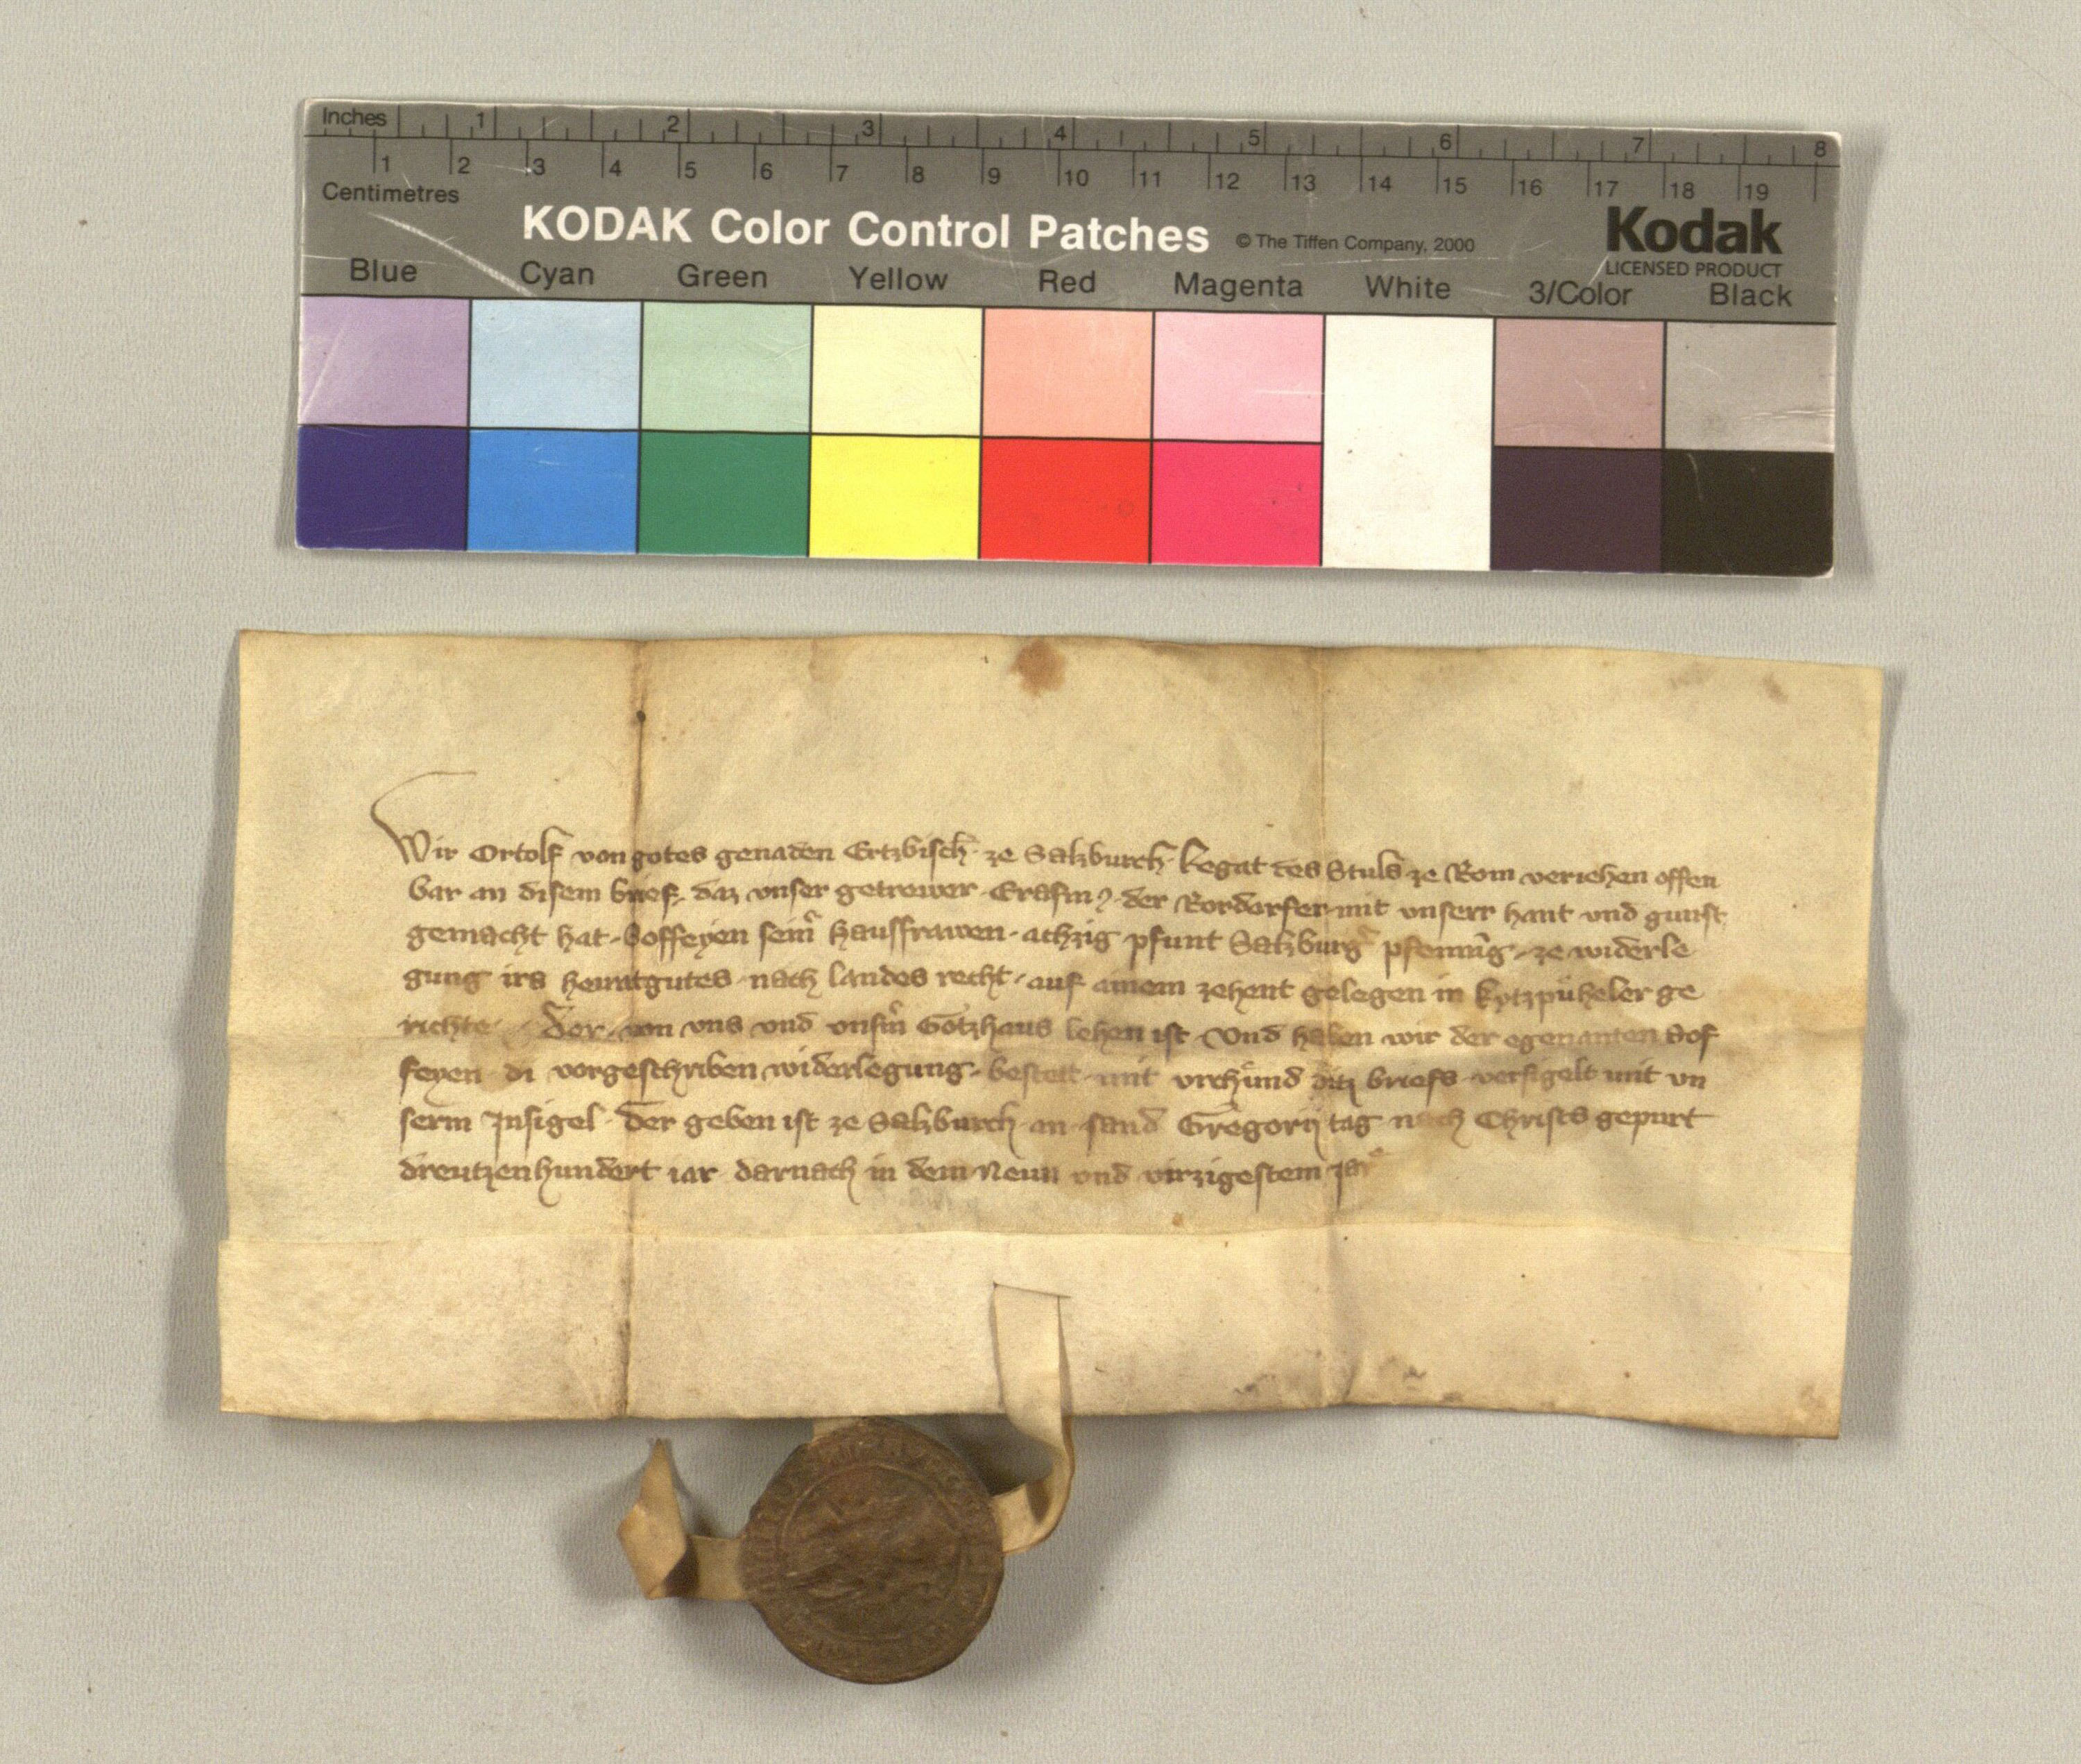 Inches 1 2 3 4 5 6 7 8
1 2 3 4 5 6 7 8 9 10 11 12 13 14 15 16 17 18 19
Centimetres
KODAK Color Control Patches © The Tiffen Company, 2000 Kodak
LICENSED PRODUCT
Blue Cyan Green Yellow Red Magenta White 3/Color Black
Wir Ortolf von gotes genaden Ertzbisch ze Salzburch Legat des Stuls ze Rom veriehen offen
bar an disem brief daz vnser getrewer Erasm der Rordorfer mit vnserr hant vnd gunst
gemacht hat Soffeyen seinr hausfrawen achzig pfunt Salzburgr pfenning ze widerle
gung irs heiratgutes nach landes recht auf ainem zehent gelegen in kytzpüheler ge
richte Der von vns vnd vnsrm Gotzhaus lehen ist Vnd haben wir der egenanten Sof
feyen di vorgeschriben widerlegung bestett mit vrchund ditz briefs versigelt mit vn
serm Insigel Der geben ist ze Salzburch an sand Gregorij tag nach Christs gepurt
dreutzenhundert iar darnach in dem Neun vnd virzigestem Jar